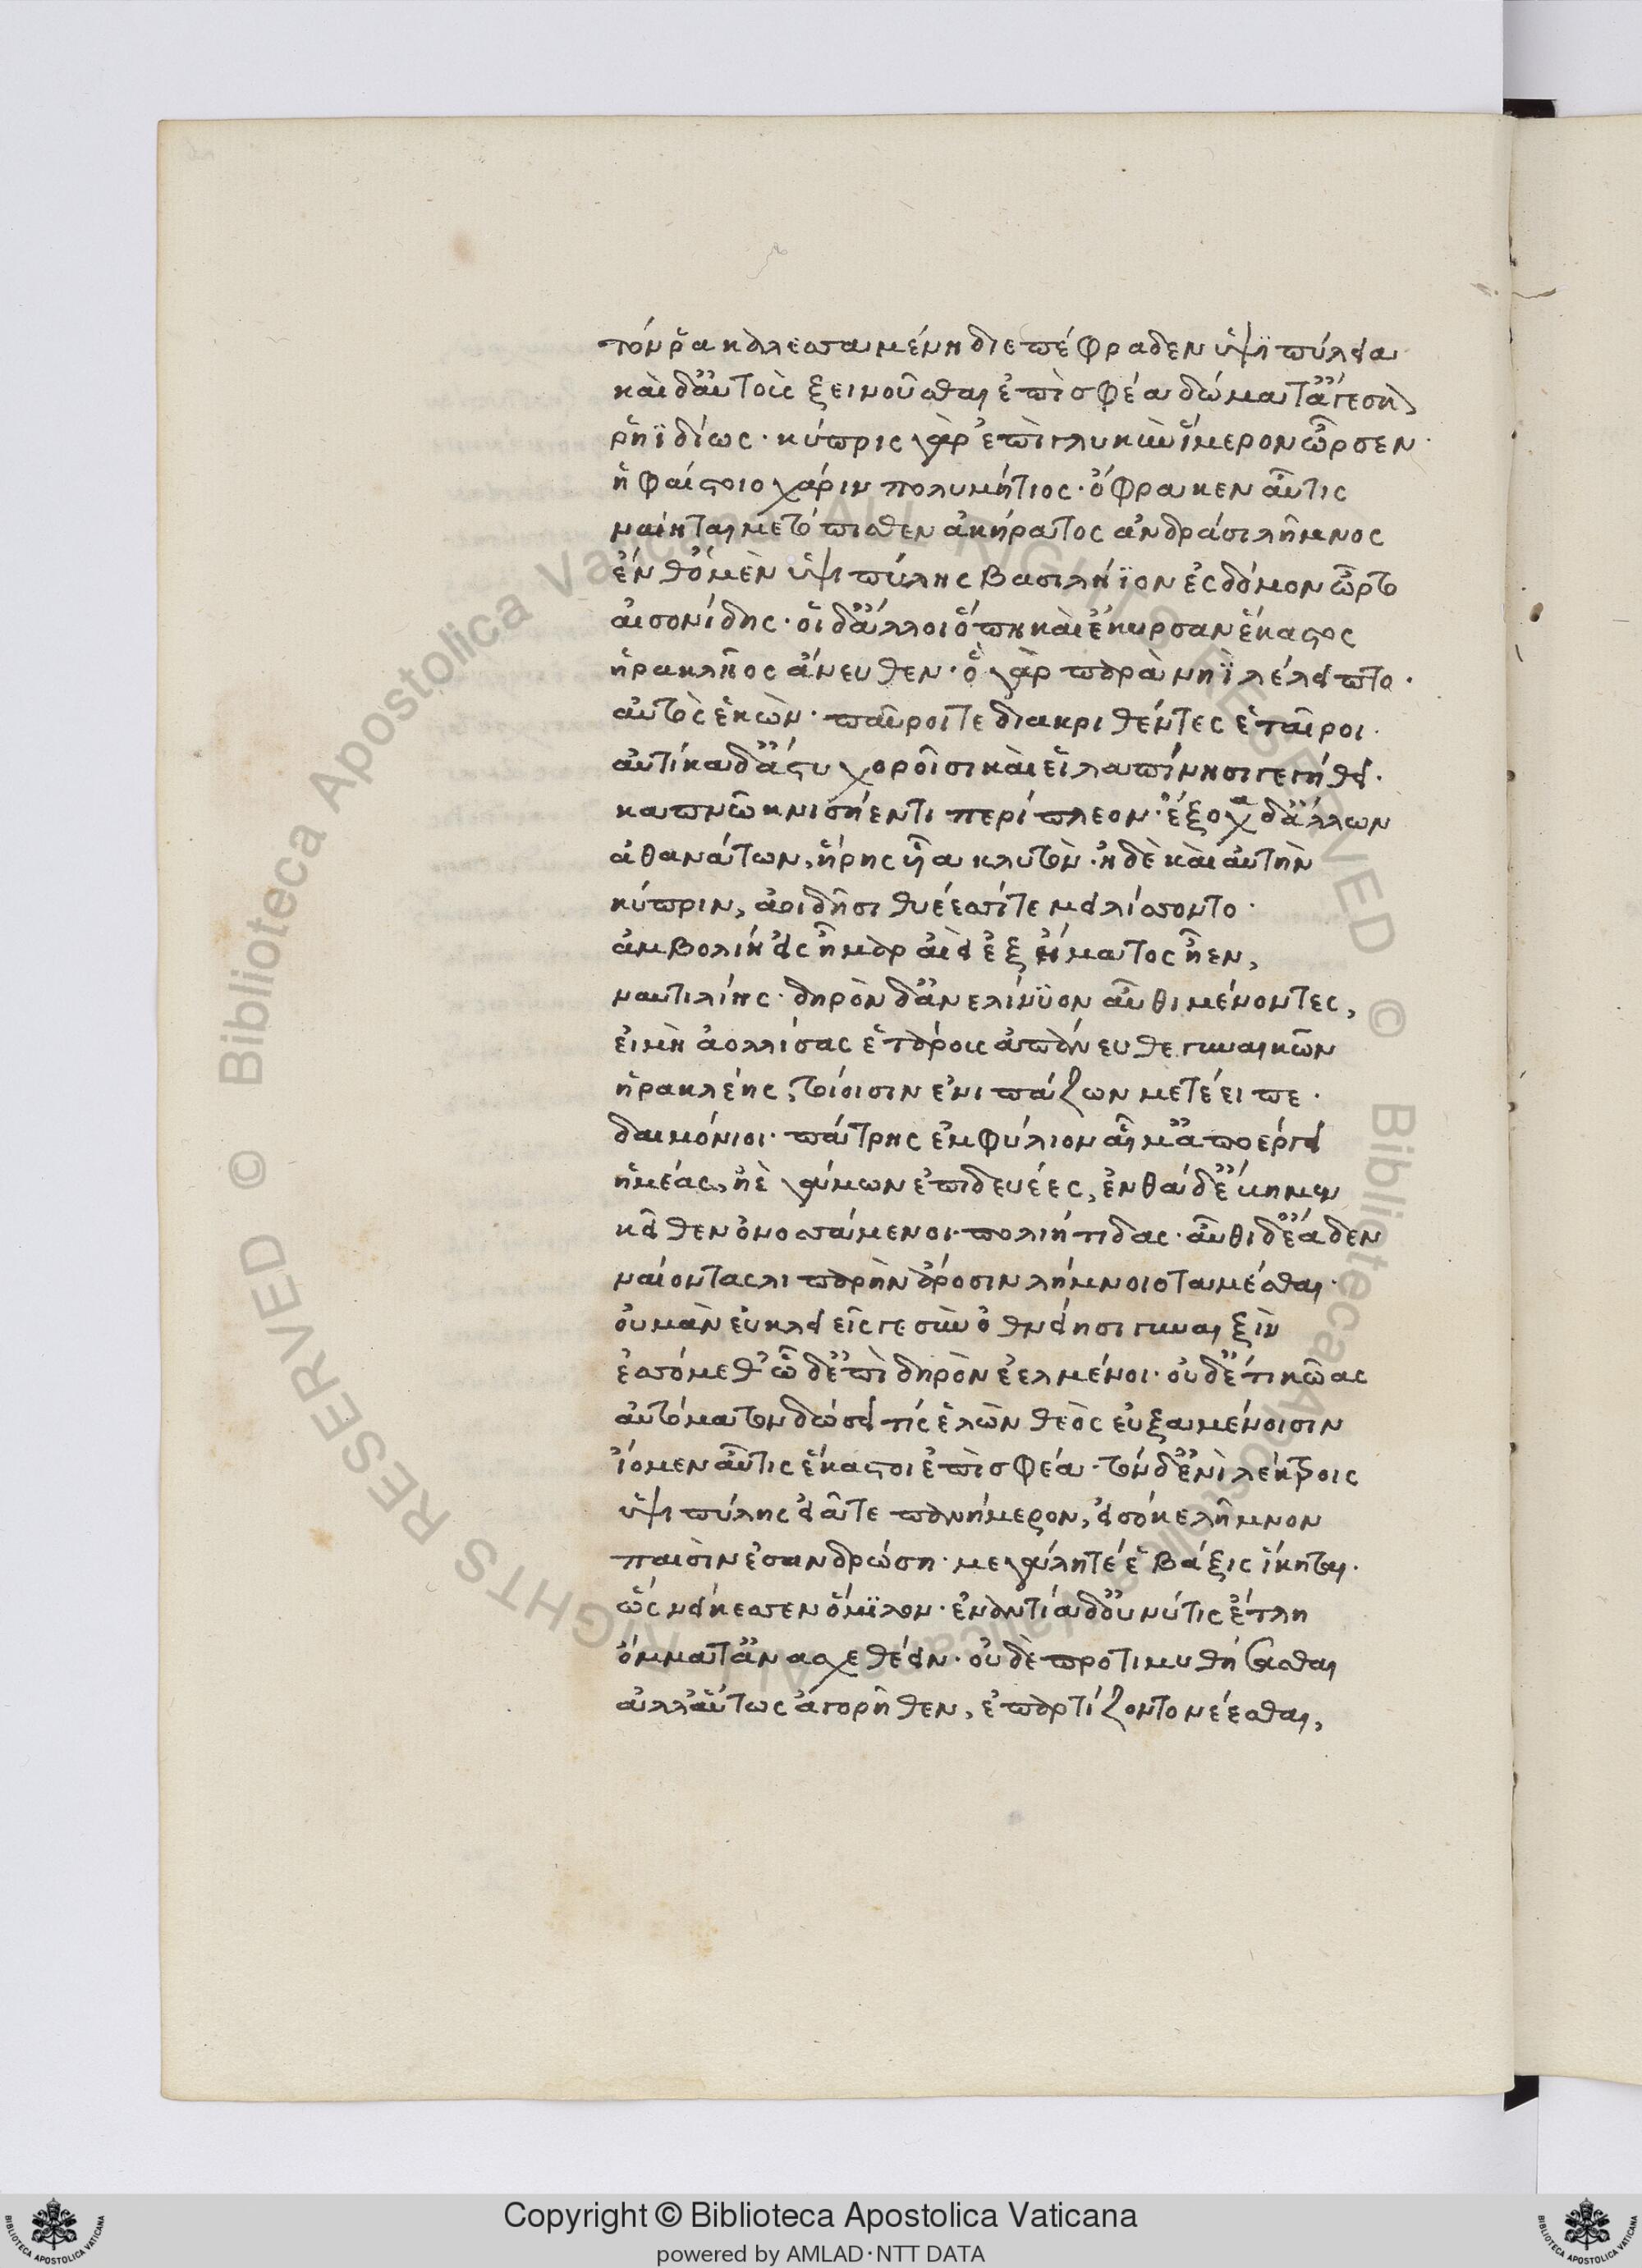 τόν ῥα καλεσσαμένη διεπέφραδεν ὑψιπύλεια
καὶ δ᾽ αὐτοὺς ξεινοῦσθαι ἐπὶ σφέα δώματ᾽ ἄγεσκον
ῥηϊδίως· κύπρις γὰρ ἐπὶ γλυκὺν ἵμερον ὦρσεν·
ἡφαίστοιο χάριν πολυμήτιος· ὄφρα κεν αὖτις
ναίηται μετόπισθεν ἀκήρατος ἀνδράσι λῆμνος
ἔνθ᾽ ὁ μὲν ὑψιπύλης βασιλήϊον ἐς δόμον ὦρτο
αἰσονίδης· οἱ δ᾽ ἄλλοι ὅπη καὶ ἔκυρσαν ἕκαστος
ἡρακλῆος ἄνευθεν· ὃ γὰρ παρὰ νηῒ λέλειπτο·
αὐτὸς ἑκὼν· παῦροί τε διακριθέντες ἑταῖροι·
αὐτίκα δ᾽ ἄστυ χοροῖσι καὶ εἰλαπίνησι γεγήθει·
καπνῶ κνισήεντι περίπλεον· ἔξοχα δ᾽ ἄλλων
ἀθανάτων, ἥρης υἷα κλυτὸν· ἠδὲ καὶ αὐτὴν
κύπριν, ἀοιδῆσι θυέεσσί τε μειλίσσοντο·
ἀμβολίη δ᾽ εἰς ἦμαρ ἀεὶ ἐξ ἤματος ἦεν,
ναυτιλίης· δηρὸν δ᾽ ἂν ἐλίνϋον αὖθι μένοντες,
εἰ μὴ ἀολλίσας ἑτάρους ἀπάνευθε γυναικῶν
ἡρακλέης, τοίοισιν ἐνιπάζων μετέειπε·
δαιμόνιοι· πάτρης ἐμφύλιον αἷμ᾽ ἀποέργει
ἡμέας, ἠὲ γάμων ἐπιδευέες, ἐνθάδ᾽ ἔκημεν
κεῖθεν ὀνοσσάμενοι πολιήτιδας· αὖθι δ᾽ ἕαδεν
ναίοντας λιπαρὴν ἄροσιν λήμνοιο ταμέσθαι·
οὐ μὰν εὐκλειεῖς γε σὺν ὀθνείησι γυναιξὶν
ἐσσόμεθ᾽ ὧδ᾽ ἐπὶ δηρὸν ἐελμένοι· οὐδ᾽ ἔτι κῶας
αὐτόματον δώσει τίς ἑλὼν θεὸς εὐξαμένοισιν
ἴομεν αὖτις ἕκαστοι ἐπὶ σφέα· τὸν δ᾽ ἐνὶ λέκτροις
ὑψιπύλης εἰᾶτε πανήμερον, εἰσόκε λῆμνον
παισὶν ἐσανδρώση· μεγάλη τέ ἑ βάξις ἵκηται·
ὣς νείκεσσεν ὅμιλον· ἐναντία δ᾽ οὔ νύ τις ἔτλη
ὄμματ᾽ ἀνασχεθέειν· οὐδὲ προτιμυθήσασθαι
ἀλλ᾽ αὔτως ἀγορῆθεν, ἐπαρτίζοντο νέεσθαι,
Copyright © Biblioteca Apostolica Vaticana
powered by AMLAD·NTT DATA